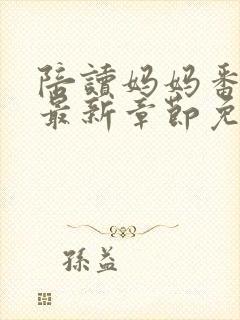 陪讀妈妈番
最新章節免
孫益